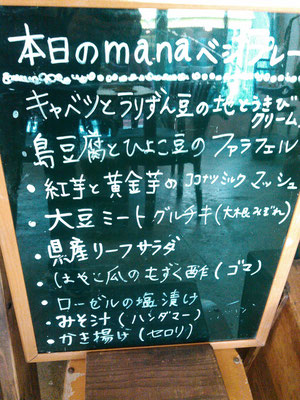 本日のmanaベジプレー
・キャベツとうりずん豆の地とうきび
クリーム
・島豆腐とひよこ豆のファラフェル
・紅芋と黄金芋のココナツミルクマッシュ
・大豆ミートグルチキ(大根&みぞれ)
・県産リーフサラダ
・はやと瓜のもずく酢(ゴマ)
・ローゼルの塩漬け
・みそ汁(ハンダマー)
・かき揚げ(セロリ)